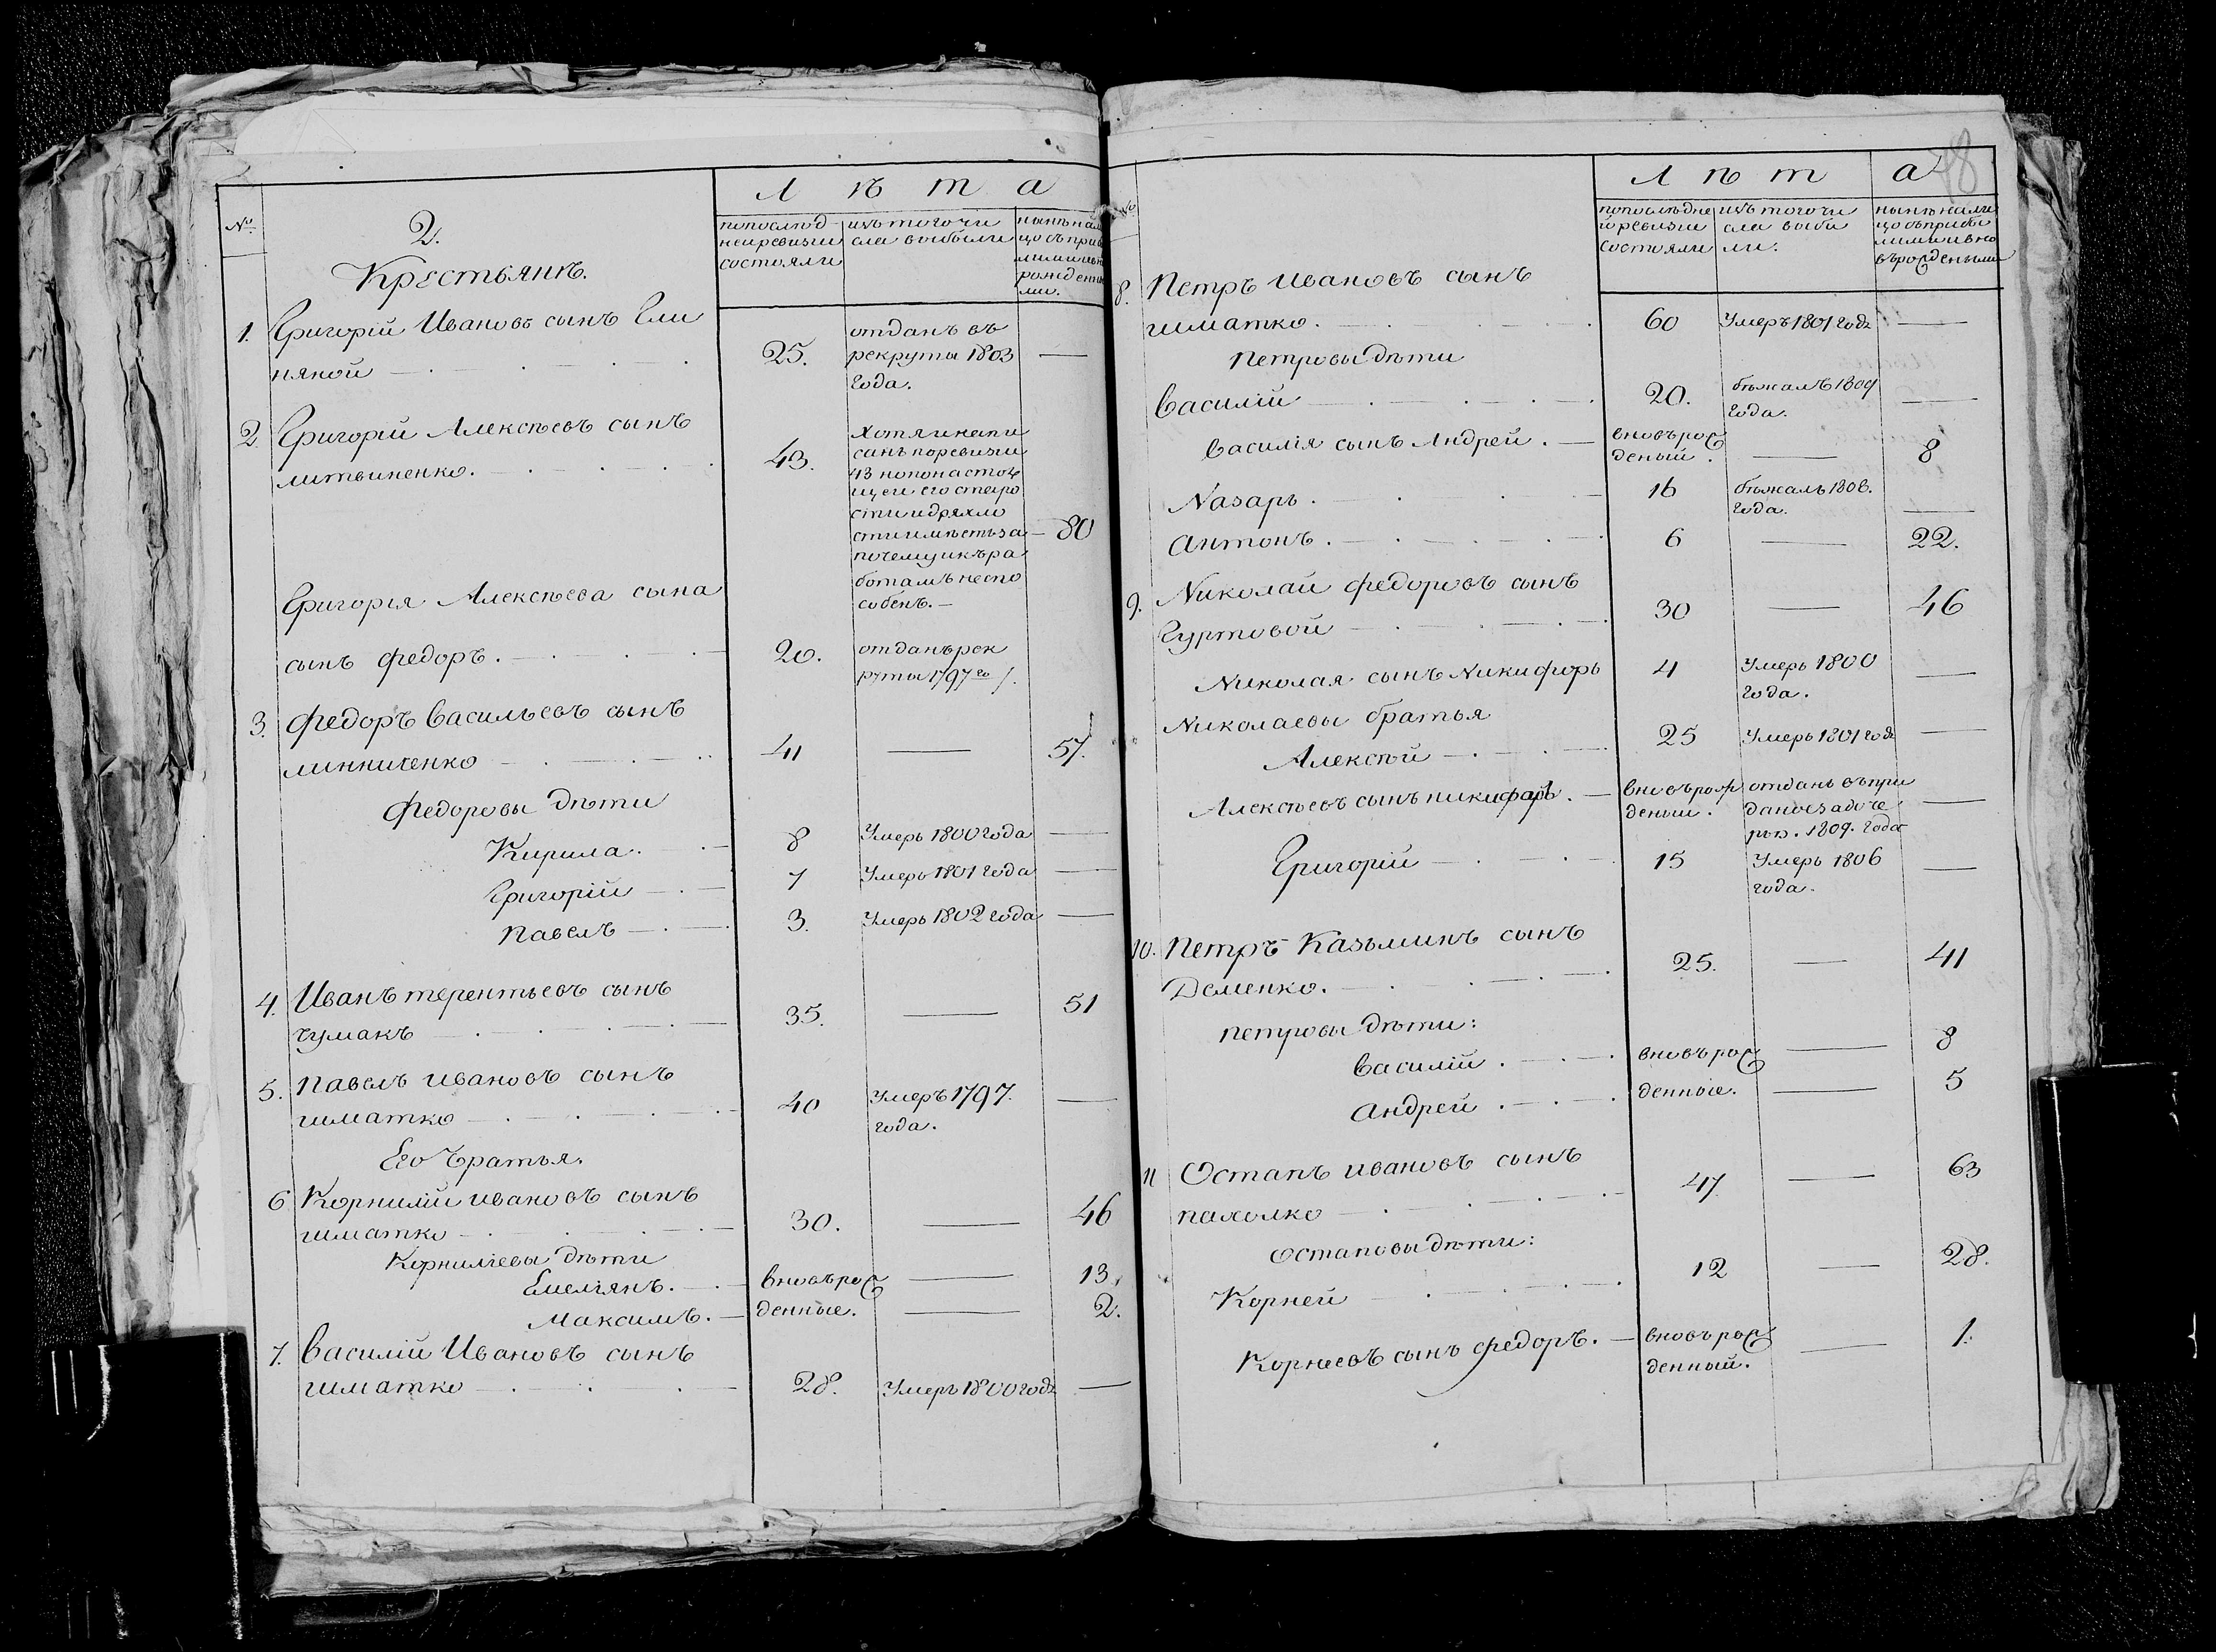 №
2.
Крестьянъ.
Л ѣ т а
попослѣд-
нейревизіи
состояли
изътогочи
сла выбыли
нынѣ нали
цо съприб
рожденны
ми.
1. Григорій Ивановъ сынъ Ели
няной
25.
отданъ въ
рекруты 1803
года.
2 Григорій Алексѣевъ сынъ
литвиненко.
43.
Хотяинапи
санъ поревизіи
43 нопонастоя
щеи его старо
стиидряхло
стиимѣетъза
почемуикъра
ботамъ неспо
собенъ.
80
Григорія Алексѣева сына
сынъ федоръ.
20.
отданърек
руты 1797го
3. Федоръ Васильевъ сынъ
линниченко
41
57.
Федоровы дѣти
Кирила.
8
Умеръ 1800 года
Григорій
7
Умеръ 1801 года
Павелъ
3.
Умеръ 1802 года
4. Иванъ терентьевъ сынъ
чумакъ
35.
51
5. Павелъ ивановъ сынъ
шматко
40
Умеръ 1797.
года.
Его братья.
6 Корнилій ивановъ сынъ
шматко
30.
46
Корниліевы дѣти
Емеліянъ.
вновърож
13.
Максимъ.
денные.
2.
7. Василій Ивановъ сынъ
шматко
28.
Умеръ 1800 года
№
48
Л ѣ т а
попослѣдне
йревизіи
состояли
изъ тогочи
сла выбы
ли.
нынѣ нали
цо съприбы
лымиивно
върожденными
8. Петръ Ивановъ сынъ
шматко.
60
Умеръ 1801 года
Петровы дѣти
Василій
20.
бѣжалъ 1809
года.
Василія сынъ Андрей.
вновърож
деный.
8
Назаръ.
16
бѣжалъ 1808.
года.
Антонъ.
6
22.
9. Николай федоровъ сынъ
Гуртовой
30
46
Николая сынъ Никифоръ
4
Умеръ 1800
года.
Николаевы братья
Алексѣй
25
Умеръ 1801 года
Алексѣевъ сынъ никифоръ.
вновърож
деный.
отданъ въпри
даноезадоче
рью. 1809. года
Григорій
15
Умеръ 1806
года.
10. Петръ Казьминъ сынъ
Деменко.
25.
41
петровы дѣти:
Василій.
вновърож
8
Андрей.
денные.
5
11 Остапъ ивановъ сынъ
пахолко
47.
63
Остаповы дѣти:
Корней
12
28.
Корнеевъ сынъ федоръ.
вновърож
денный.
1.